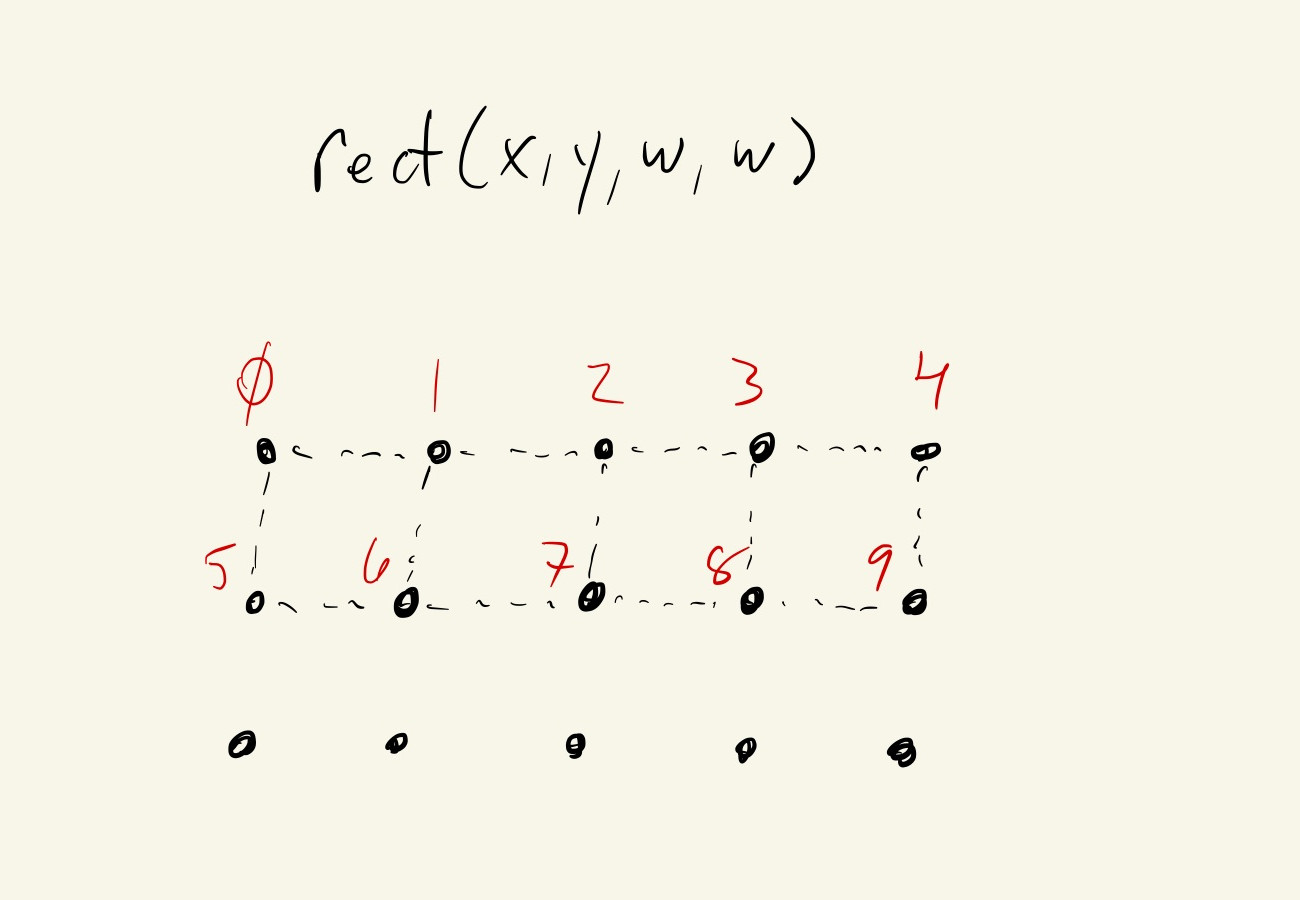 rect(x, y, w, w)
0 1 2 3 4
5 6 7 8 9